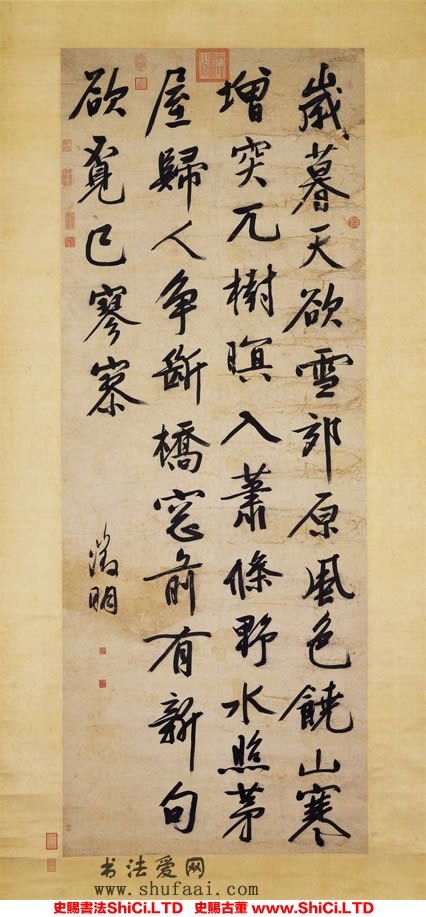 歲暮天欲雪郊原風色饒山寒
增突兀樹暝入蕭條野水照茅
屋歸人爭斷橋窓前有新句
欲覓已寥寥
徵明
书法爱网
www.shufaai.com
史賜書法ShiCi.LTD 史賜古董ShiCi.LTD